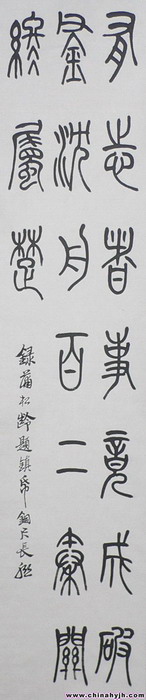 有志者事竟成破
釜沈舟百二秦關
終屬楚
錄蒲松齡題鎮帋銅尺長聯
www.chinahyjh.com